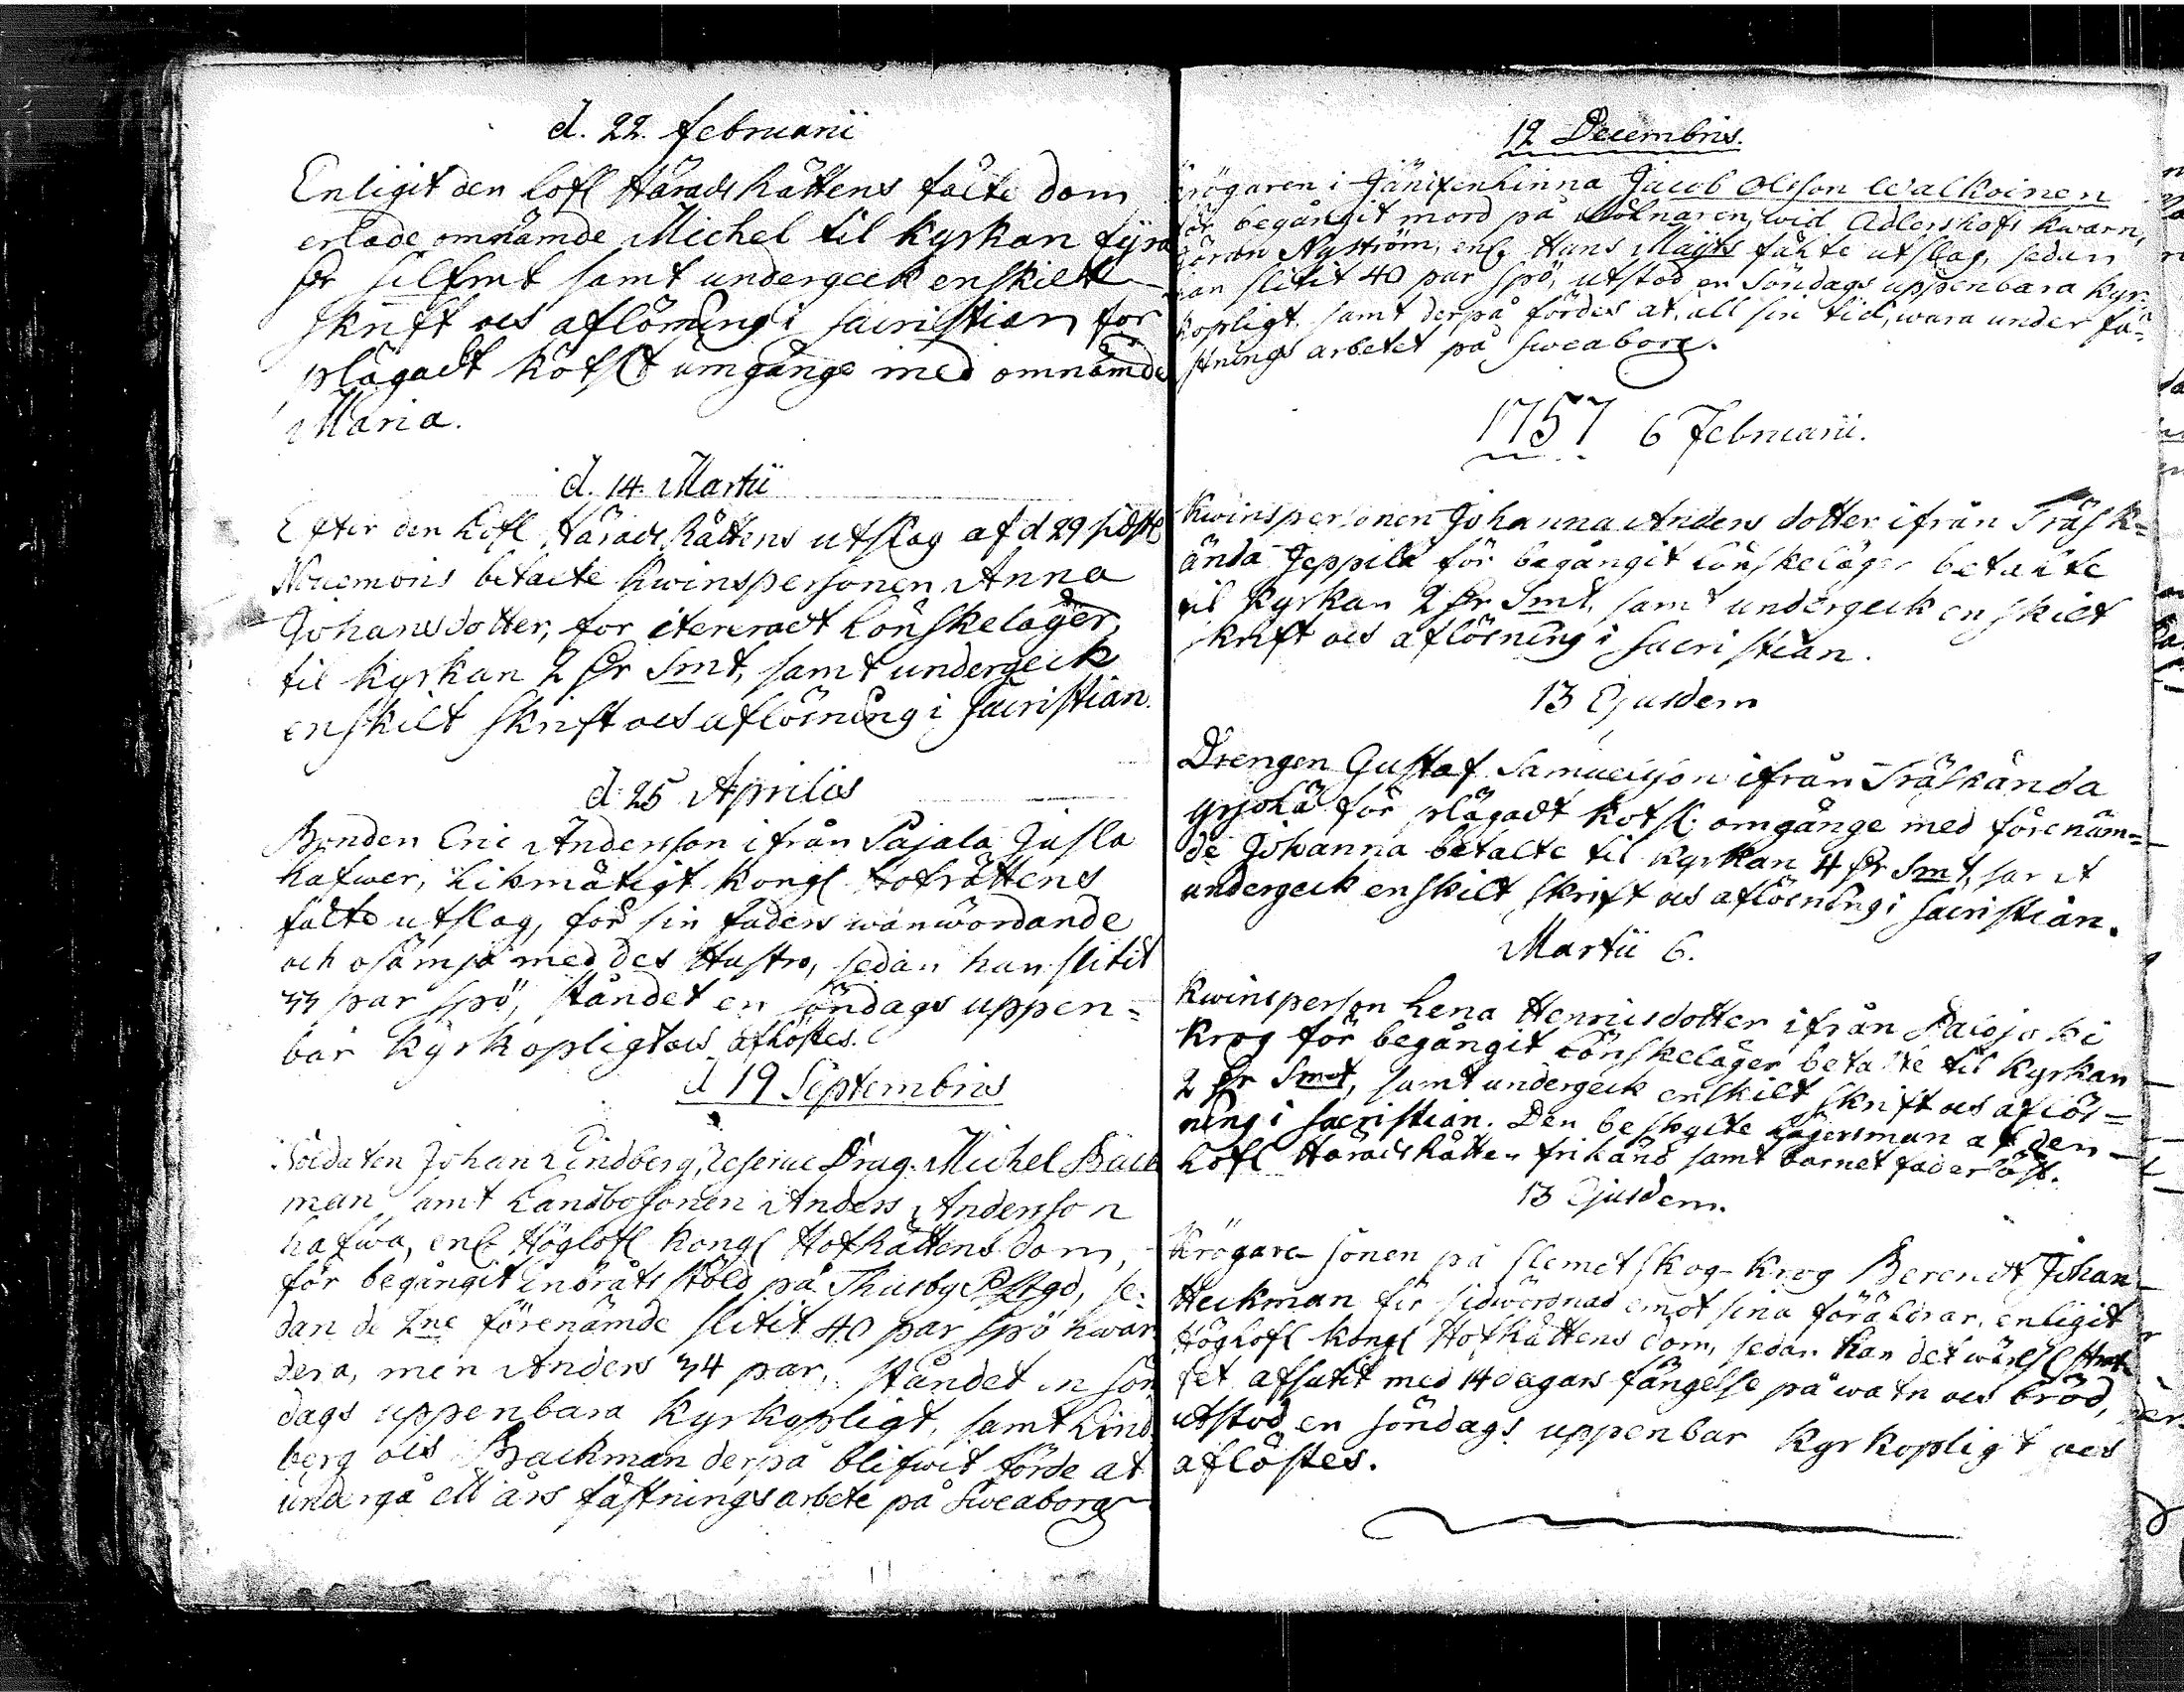 d. 22. februarii
Enligit den lofl Härads Rättens fälte dom
erlade omnämde Michel til kyrkan fyra
dr silfmt samt undergeck enskilt
skrift ock aflösning i sacristian för
plägadt kötsl umgänge med omnämde
Maria.
d. 14. Martii
Efter den Lofl Härads Rättens utslag af d 29 sidstl
Novembris betalte kwinspersonen Anna
Johansdotter, for itereradt Lönskeläger,
til kyrkan 2 dr Smt, samt undergeck
enskilt skrift ock aflösning i sacristian.
d. 25 Aprilis
Bonden Eric Andersson ifrån Pajala Jusla
hafwer, likmätigt kongl Hofrättens
fälte utslag, för sin faders wanwördande
och osämja med des Hustro, sedan han slitit
33 par spö, ståndet en söndags uppen=
bar kyrkopligt ock aflöstes.
d 19 Septembris
Soldaten Johan Lindberg, Reserue Drag. Michel Back
man samt Landbosonen Anders Andersson
hafwa, enl Höglofl kongl HofRättens dom,
för begångit inbråts stöld på Thusby Prstgd, se=
dan de 2ne förenämde slitit 40 par spö hwar
dera, men Anders 34 par, ståndet en sön
dags uppenbara kyrkopligt, samt Lind
berg ock Backman derpå blifwit förde at
undergå ett års fästningsarbete på Sweaborg
12 Decembris.
krögaren i Jänixenlinna Jacob Olsson Walkoinen
för begångit mord på Mölnaren wid Adlershofs kwarn,
Göran Nyström, enl Hans Mayts fälte utslag, sedan
han slitit 40 par spö, utstod en söndags uppenbara kyr=
kopligt, samt derpå fördes at, all sin tid, wara under fä=
stnings arbetet på Sweaborg.
1757 6 Februarii.
kwinspersonen Johanna Anders dotter ifrån Träsk=
ända Jeppila för begångit Lönskeläger betalte
til kyrkan 2 dr Smt, samt undergeck enskilt
skrift ock aflösning i sacristian.
13 Ejusdem
Drengen Gustaf Samuelsson ifrån Träskända
för plägadt kötsl: omgänge med förenäm=
de Johanna betalte til kyrkan 4 dr Smt, samt
undergeck enskilt skrift ock aflösning i sacristian.
Martii 6.
kwinsperson Lena Henricsdotter ifrån Palojoki
krog för begångit Lönskeläger betalte til kyrkan
2 dr Smt, samt undergeck enskilt skrift ock aflös=
ning i sacristian. Den beskylte Lägersman af den
Lofl HäradsRätten frikänd samt barnet faderlöst.
13 Ejusdem.
krögare sonen på Klemetskog-krog Berendt Johan
Heckman för sidwördnad emot sina föräldrar, enligit
Höglofl kongl HofRättens dom, sedan han det wärldsl straf
fet afsutit med 14 dagars fängelse på watn ock bröd,
utstod en söndags uppenbar kyrkopligt ock
aflöstes.